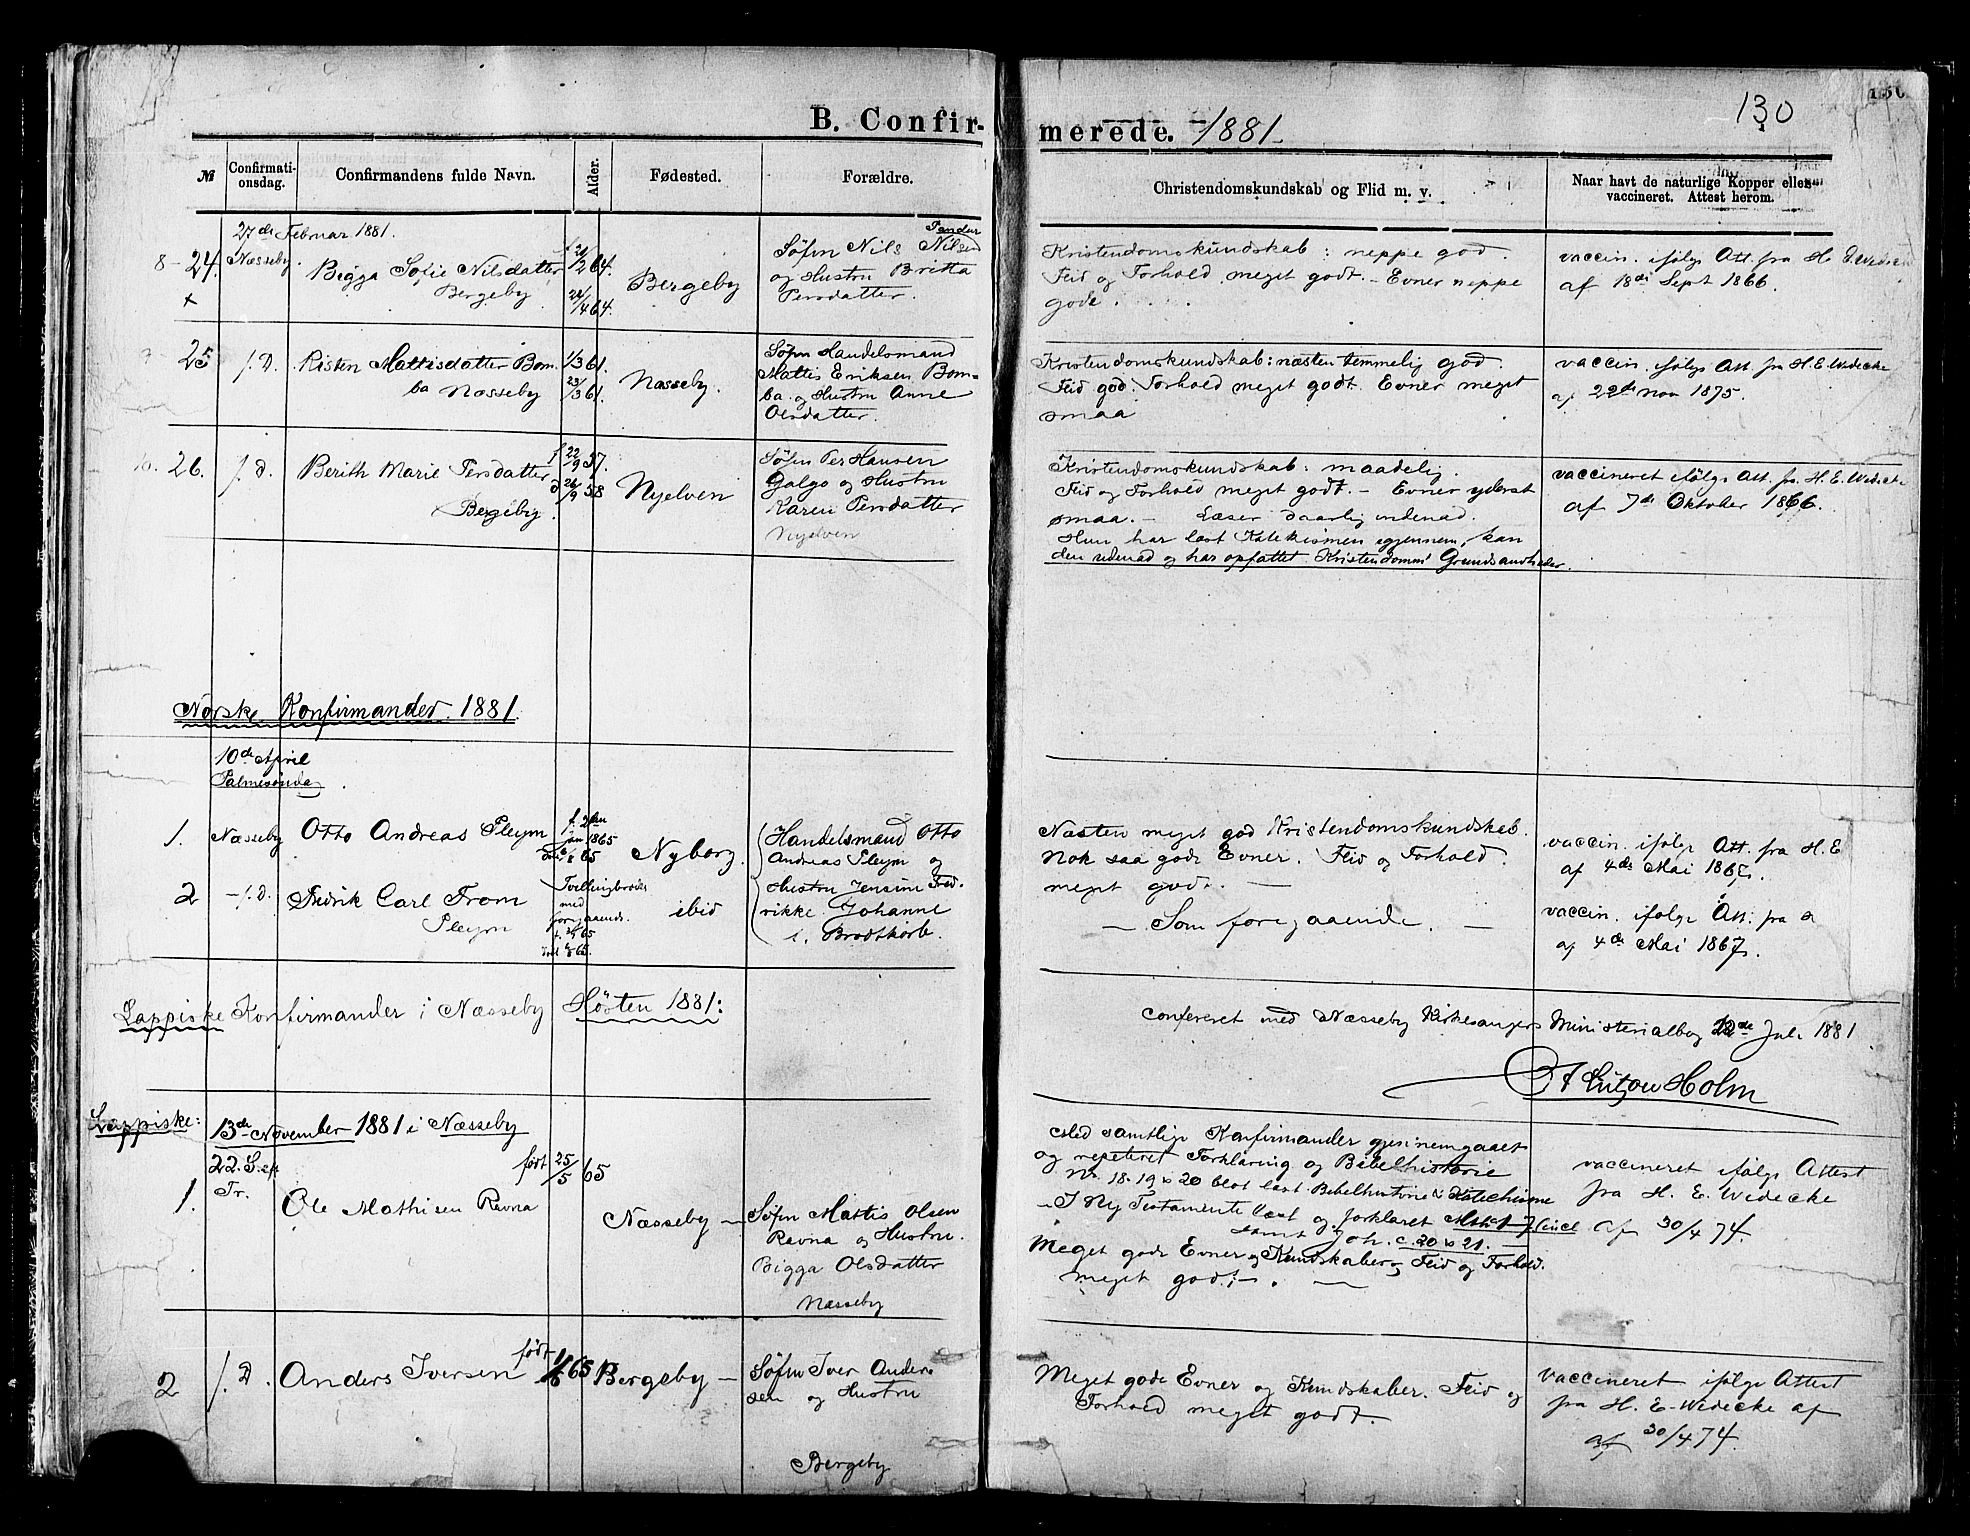 130
B. Confirmerede. 1881.
№ Confirmationsdag. Confirmandens fulde Navn. Alder. Fødested. Forældre. Christendomskundskab og Flid m. v. Naar havt de naturlige Kopper eller vaccineret. Attest herom.
27de Februar 1881.
8 - 24. Næsseby.
Bigga Sofie Nilsdatter
Bergeby
24/4 64.
Bergeby
Søfin Nils Nilsen
og Hustru Britta
Persdatter.
Kristendomskundskab: neppe god.
Flid og Forhold meget godt. - Evner neppe
gode.
vaccin. ifølge Att. fra H. E. Wedecke
af 18de Sept 1866.
25 f. D. Risten Mattisdatter Bom
ba Næsseby
1/3 61.
23/3 61.
Næsseby.
Søfin Handelsmand
Mattis Eriksen Bom-
ba og Hustru Anne
Olsdatter.
Kristendomskundskab: næsten temmelig god.
Flid god. Forhold meget godt. Evner meget
smaa
vaccin. ifølge Att. fra H. E. Wedecke
af 22de nov 1875.
26. f. d. Berith Marie Persdatter
Bergeby.
f 22/9 57.
d 26/9 58
Nyelven
Søfin Per Hansen
Galgo og Hustru
Karen Persdatter
Nyelven
Kristendomskundskab: maadelig.
Flid og Forhold meget godt. - Evner yderst
smaa. - Læser daarlig indenad.
Hun har læst Katekismen igjennem, kan
den udenad og har opfattet Kristendomms Grundsandheder.
vaccineret ifølge Att. fra H. E. Wedecke
af 7de Oktober 1866.
Norske Konfirmander 1881.
10de April
Palmesøndag.
1. Næsseby Otto Andreas Pleym
jan 1865
Nyborg.
Handelsmand Otto
Andreas Pleym og
Hustru Jensine Fred-
rikke Johanne
f. Brodtkorb.
Næsten meget god Kristendomskundskab.
Nok saa gode Evner. Flid og Forhold
meget god. -
vaccin. ifølge Att. fra H. E
af 4de Mai 1867.
2 - f. D. Fredrik Carl From
Pleym
Tvillingbroder
med
foregaaende.
ibid
- Som foregaaende. -
vaccin. ifølge Att. fra
af 4de Mai 1867.
Lappiske Konfirmander i Næsseby Høsten 1881:
Confereret med Næsseby Kirkesangers Ministerialbog 12de Juli 1881
A Lützow Holm
Lappiske: 13de November 1881 i Næsseby
22. S. eft
Tr.
1. Ole Mathisen Ravna
født 25/5 65
Næsseby -
Søfin Mattis Olsen
Ravna og Hustru
Bigga Olsdatter
Næsseby
Med samtlige Konfirmander gjennemgaaet
og repeteret Forklaring og Bibelhistorie
Nr 18. 19 & 20 blot læst Bibelhistorie & Katechisme
- I Ny Testamente læst og forklaret
samt Joh. c. 20 & 21.
Meget gode Evner og Kundskaber, Flid og Forhold
meget godt. -
vaccineret ifølge Attest
fra H. E. Wedecke
af 30/4 74
2 f. D. Anders Iversen født 65 Bergeby -
Søfin Iver Ander
sen og Hustru
Bergeby
Meget gode Evner og Kundskaber. Flid og
Forhold meget godt.
vaccineret ifølge Attest
fra H. E. Wedecke af
af 30/4 74.